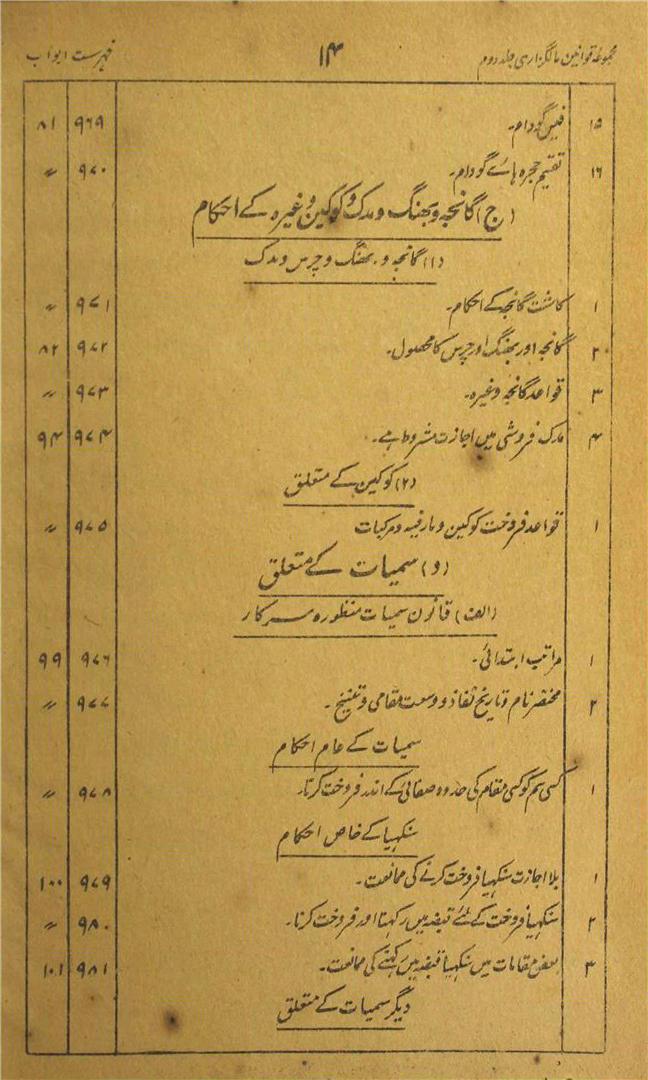 مجموعۂ قوانین مالگزاری جلد دوم ۱۴ فہرست ابواب
۱۵ فیس گودام۔ ۹۶۹ ۸۱
۱۶ تقسیم حجرہ ہائے گودام۔ ۹۷۰ 〃
(ج) گانجہ و بھنگ و مدک و کوکین وغیرہ کے احکام
(۱) گانجہ و بھنگ و چرس و مدک
۱ کاشت گانجہ کے احکام۔ ۹۷۱ 〃
۲ گانجہ اور بھنگ اور چرس کا محصول۔ ۹۷۲ ۸۲
۳ قواعد گانجہ وغیرہ۔ ۹۷۳ 〃
۴ مدک فروشی میں اجازت مشروط ہے۔ ۹۷۴ ۹۴
(۲) کوکین کے متعلق
۱ قواعد فروخت کوکین و مارفیہ و مرکبات ۹۷۵ 〃
(د) سمیات کے متعلق
(الف) قانون سمیات منظورہ سرکار
۱ مراتب ابتدائی۔ ۹۷۶ ۹۹
۲ مختصر نام و تاریخ نفاذ و وسعت مقامی و تنسیخ۔ ۹۷۷ 〃
سمیات کے عام احکام
۱ کسی سم کو کسی مقام کی حدود صفائی کے اندر فروخت کرنا۔ ۹۷۸ 〃
سنکہیا کے خاص احکام
۱ بلا اجازت سنکہیا فروخت کرنے کی ممانعت۔ ۹۷۹ ۱۰۰
۲ سنکہیا فروخت کے لئے قبضہ میں رکہنا اور فروخت کرنا۔ ۹۸۰ 〃
۳ بعض مقامات میں سنکہیا قبضہ میں رکہنے کی ممانعت۔ ۹۸۱ ۱۰۱
دیگر سمیات کے متعلق